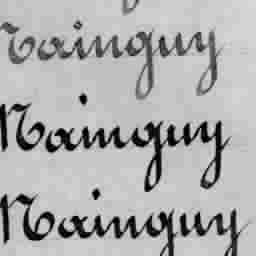 Nainguy
Nainguy
Nainguy